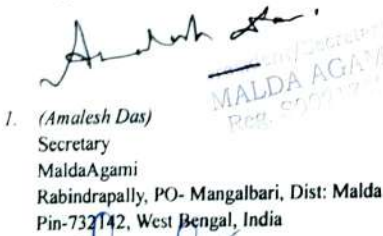 Amalesh Das.
MALDA AGAMI
1. (Amalesh Das)
Secretary
MaldaAgami
Rabindrapally, PO- Mangalbari, Dist: Malda
Pin-732142, West Bengal, India